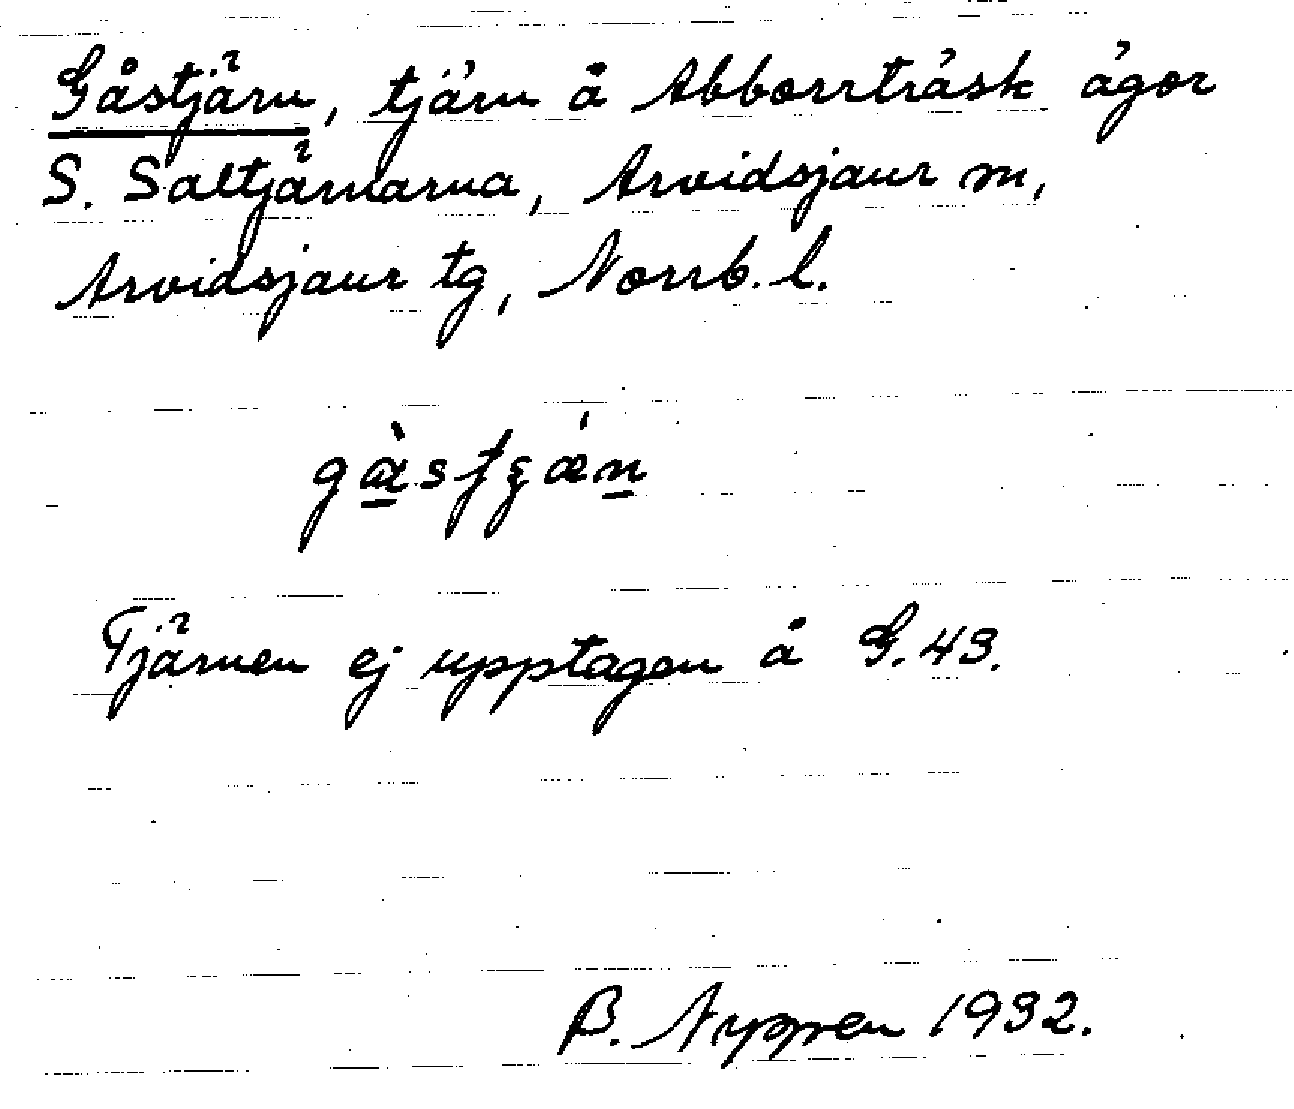 Gåstjärn, tjärn å Abborrträsk ägor
S. Saltjärnarna, Arvidsjaur sn,
Arvidsjaur tg, Norrb. l.
Tjärnen ej upptagen å G. 43.
B. 1932.